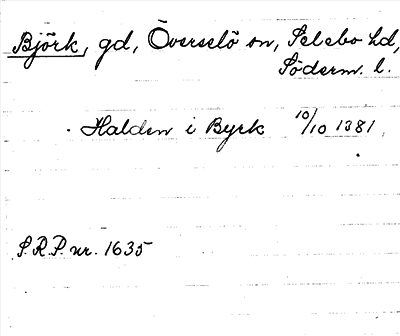 Björk, gd, Överselö sn, Selebo hd,
Söderm. l.
Halden i Byrk 10/10 1381.
S.R.P. nr. 1635